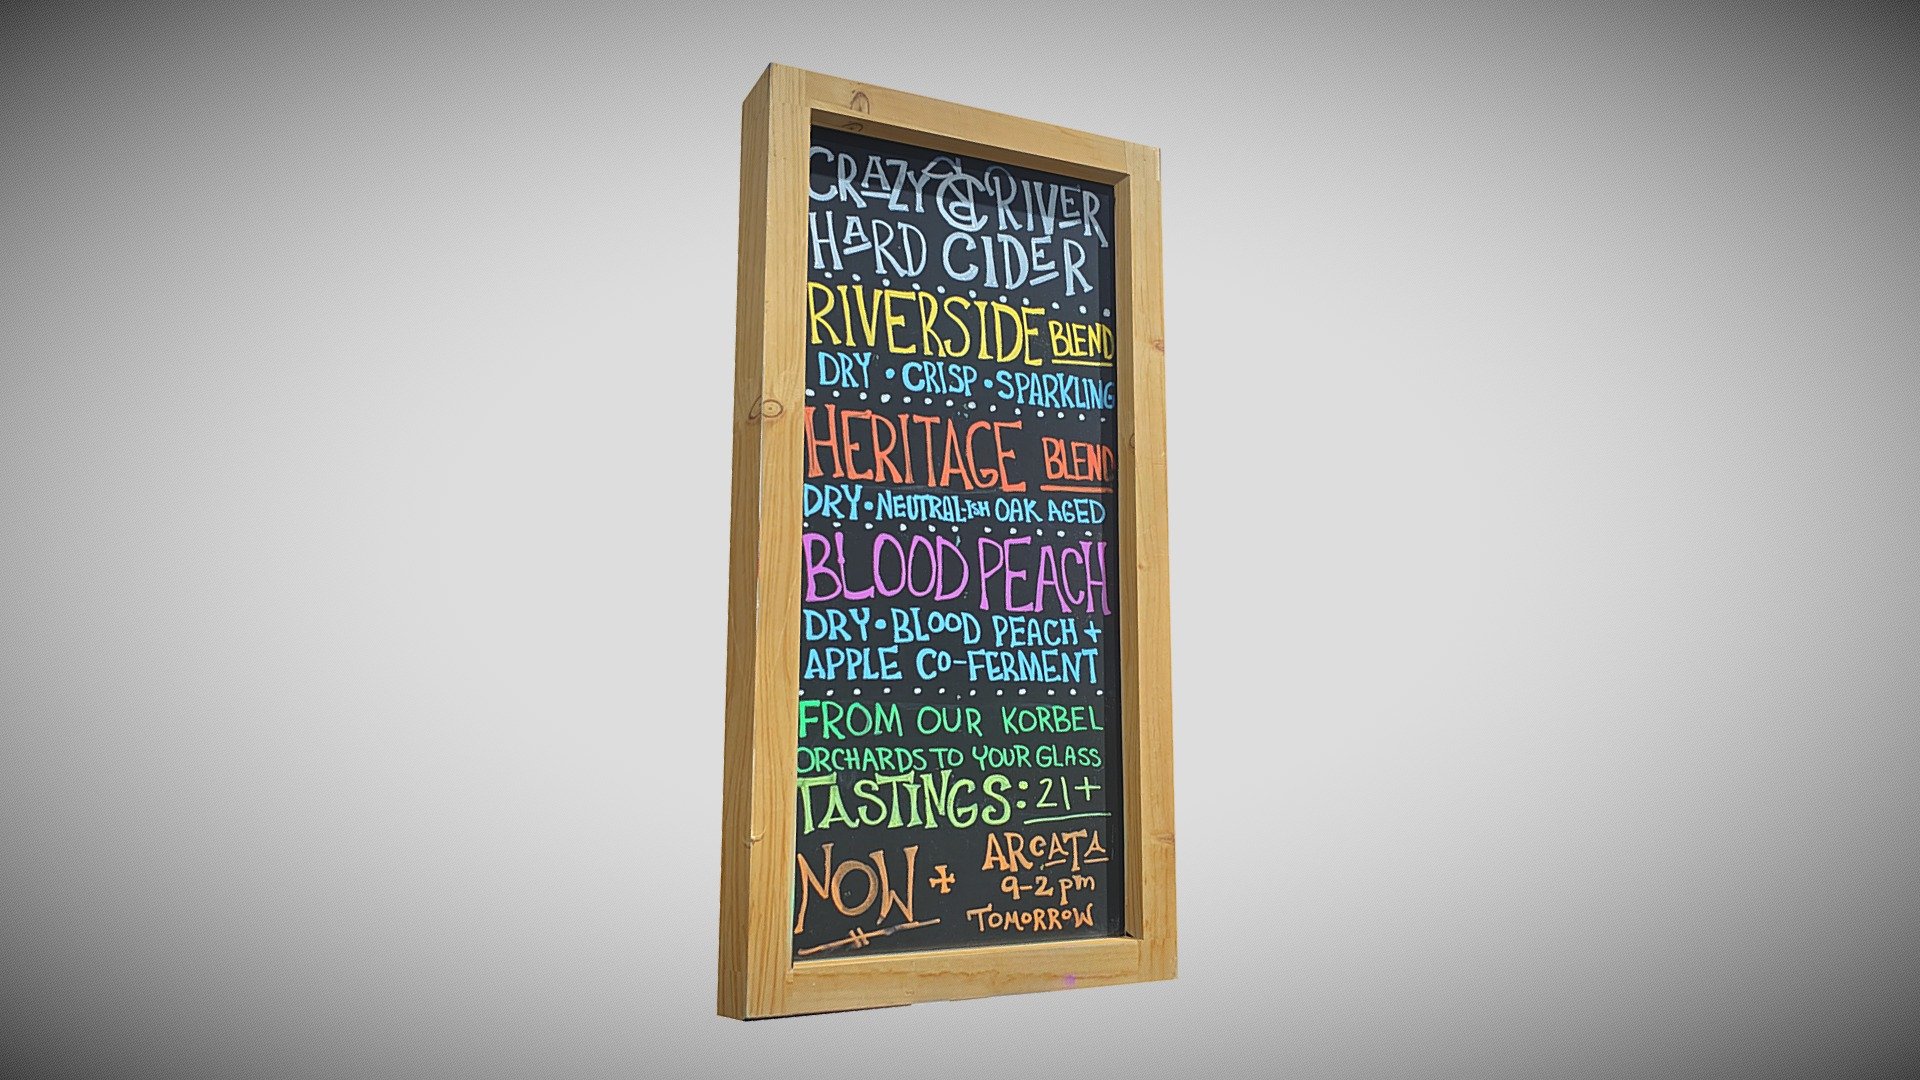 CRAZY RIVER
HARD CIDER
RIVERSIDE BLEND
DRY • CRISP • SPARKLING
HERITAGE BLEND
DRY • NEUTRAL-ISH OAK AGED
BLOOD PEACH
DRY • BLOOD PEACH +
APPLE CO-FERMENT
FROM OUR KORBEL
ORCHARDS TO YOUR GLASS
TASTINGS: 21+
NOW +
ARCATA
9-2 pm
TOMORROW